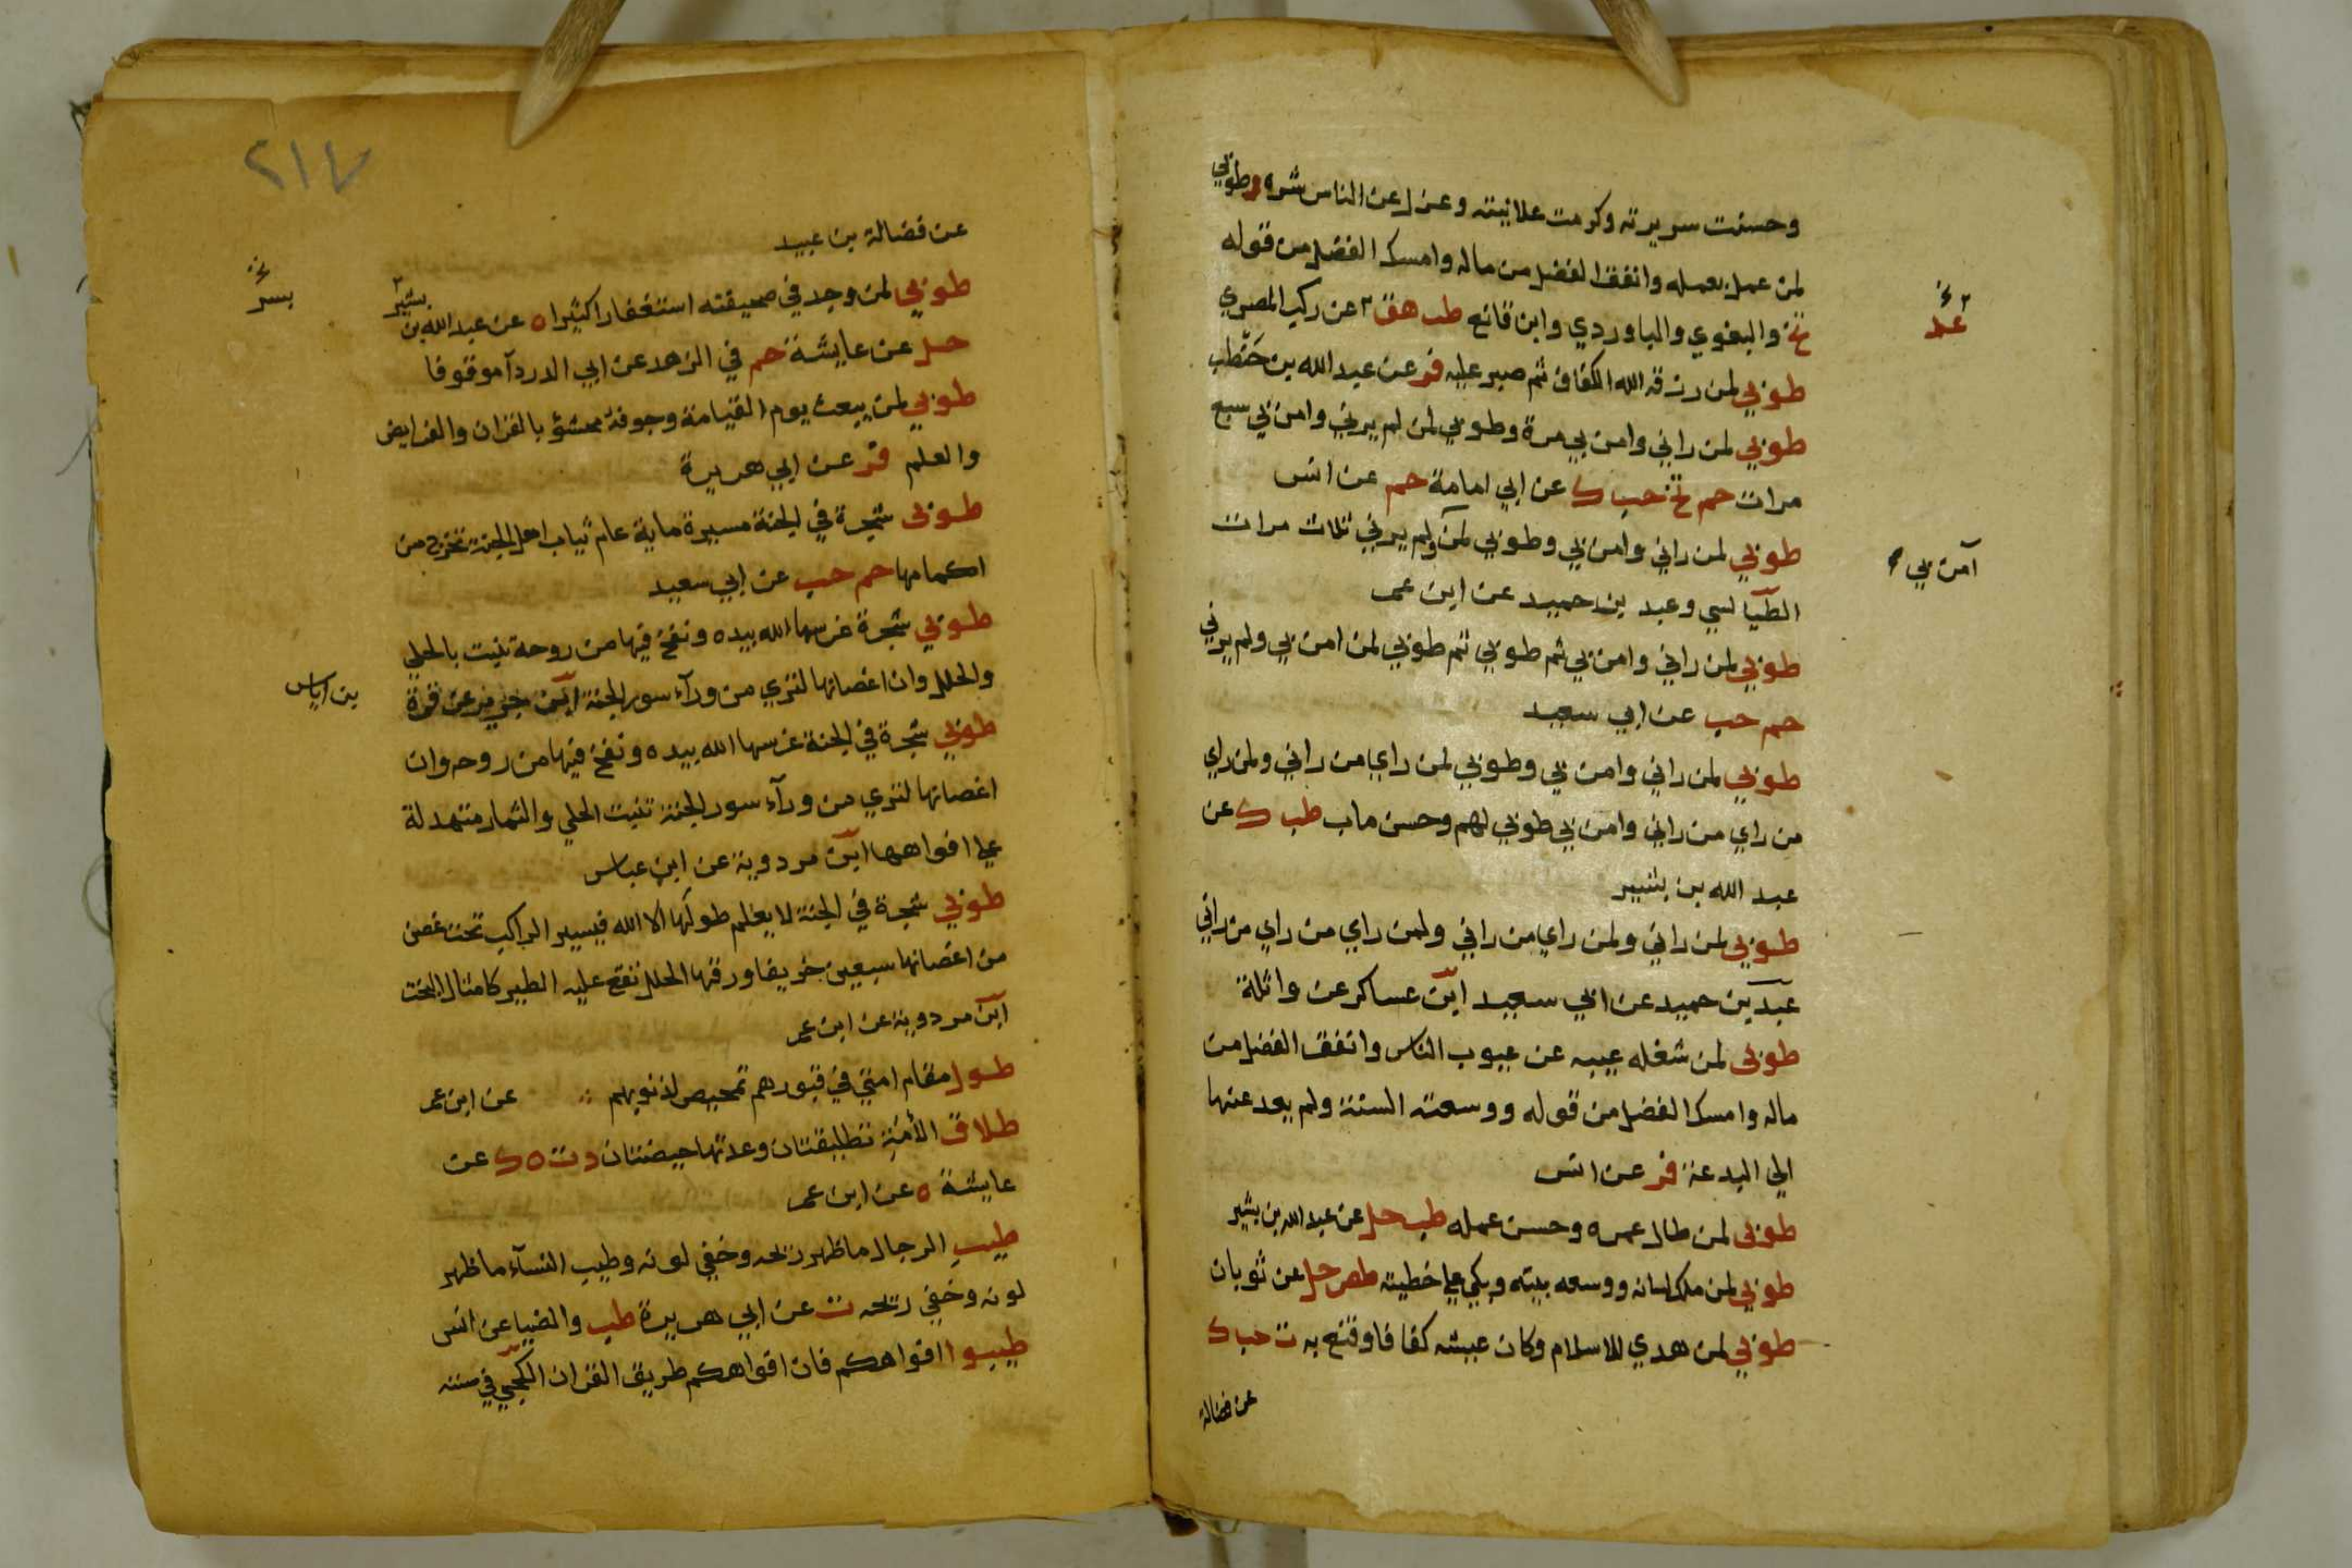 وحسنت سريرته وكرمت علانيته وعزل عن الناس شره وطوبي
لمن عمل بعمله وانفق الفضل من ماله وامسك الفضل من قوله
تخ والبغوي والباوردي وابن قانع طب هق عن ركب المصري
طوبي لمن رزقه الله الكفاف ثم صبر عليه فر عن عبد الله بن حنطب
طوبي لمن راني وامن بي مرة وطوبي لمن لم يرني وامن بي سبع
مرات حم تخ حب ك عن ابي امامة حم عن انس
طوبي لمن راني وامن بي وطوبي لمن ولم يرني ثلاث مرات
آمن بي
الطيالسي وعبد بن حميد عن ابن عمر
طوبي لمن راني وامن بي ثم طوبي ثم طوبي لمن امن بي ولم يرني
حم حب عن ابي سعيد
طوبي لمن راني وامن بي وطوبي لمن راي من راني ولمن راي
من راي من راني وامن بي طوبي لهم وحسن ماب طب ك عن
عبد الله بن بشير
طوبي لمن راني ولمن راي من راني ولمن راي من راي من راني
عبد بن حميد عن ابي سعيد ابن عساكر عن واثلة
طوبى لمن شغله عيبه عن عيوب الناس وانفق الفضل من
ماله وامسك الفضل من قوله ووسعته السنة ولم يعد عنها
الي البدعة فر عن انس
طوبى لمن طال عمره وحسن عمله طب حل عن عبد الله بن بشير
طوبي لمن ملك لسانه ووسعه بيته وبكي علي خطيته طص حل عن ثوبان
طوبي لمن هدي للاسلام وكان عيشه كفافا وقنع به ت حب ك
عن فضالة
٢١٧
عن فضالة بن عبيد
طوبي لمن وجد في صحيفته استغفارا كثيرا ه عن عبد الله بن بشير
بسر
حل عن عايشة حم في الزهد عن ابي الدردآ موقوفا
طوبي لمن يبعث يوم القيامة وجوفه محشو بالقران والفرايض
والعلم فر عن ابي هريرة
طوبى شجرة في الجنة مسيرة ماية عام ثياب اهل الجنة تخرج من
اكمامها حم حب عن ابي سعيد
طوبي شجرة غرسها الله بيده ونفخ فيها من روحه تنبت بالحلي
والحلل وان اغصانها لتري من ورآء سور الجنة ابن جرير عن قرة
بن اياس
طوبي شجرة في الجنة غرسها الله بيده ونفخ فيها من روحه وان
اغصانها لتري من ورآء سور الجنة تنبت الحلي والثمار متهدلة
علي افواهها ابن مردوية عن ابن عباس
طوبي شجرة في الجنة لا يعلم طولها الا الله فيسير الراكب تحت غصن
من اغصانها سبعين خريفا ورقها الحلل تقع عليه الطير كامثال البخت
ابن مردوية عن ابن عمر
طول مقام امتي في قبورهم تمحيص لذنوبهم عن ابن عمر
طلاق الأمة تطليقتان وعدتها حيضتان د ت ه ك عن
عايشة ه عن ابن عمر
طيب الرجال ما ظهر ريحه وخفي لونه وطيب النسآء ما ظهر
لونه وخفي ريحه ت عن ابي هريرة طب والضيا عن انس
طيبوا افواهكم فان افواهكم طريق القران الكجي في سننه